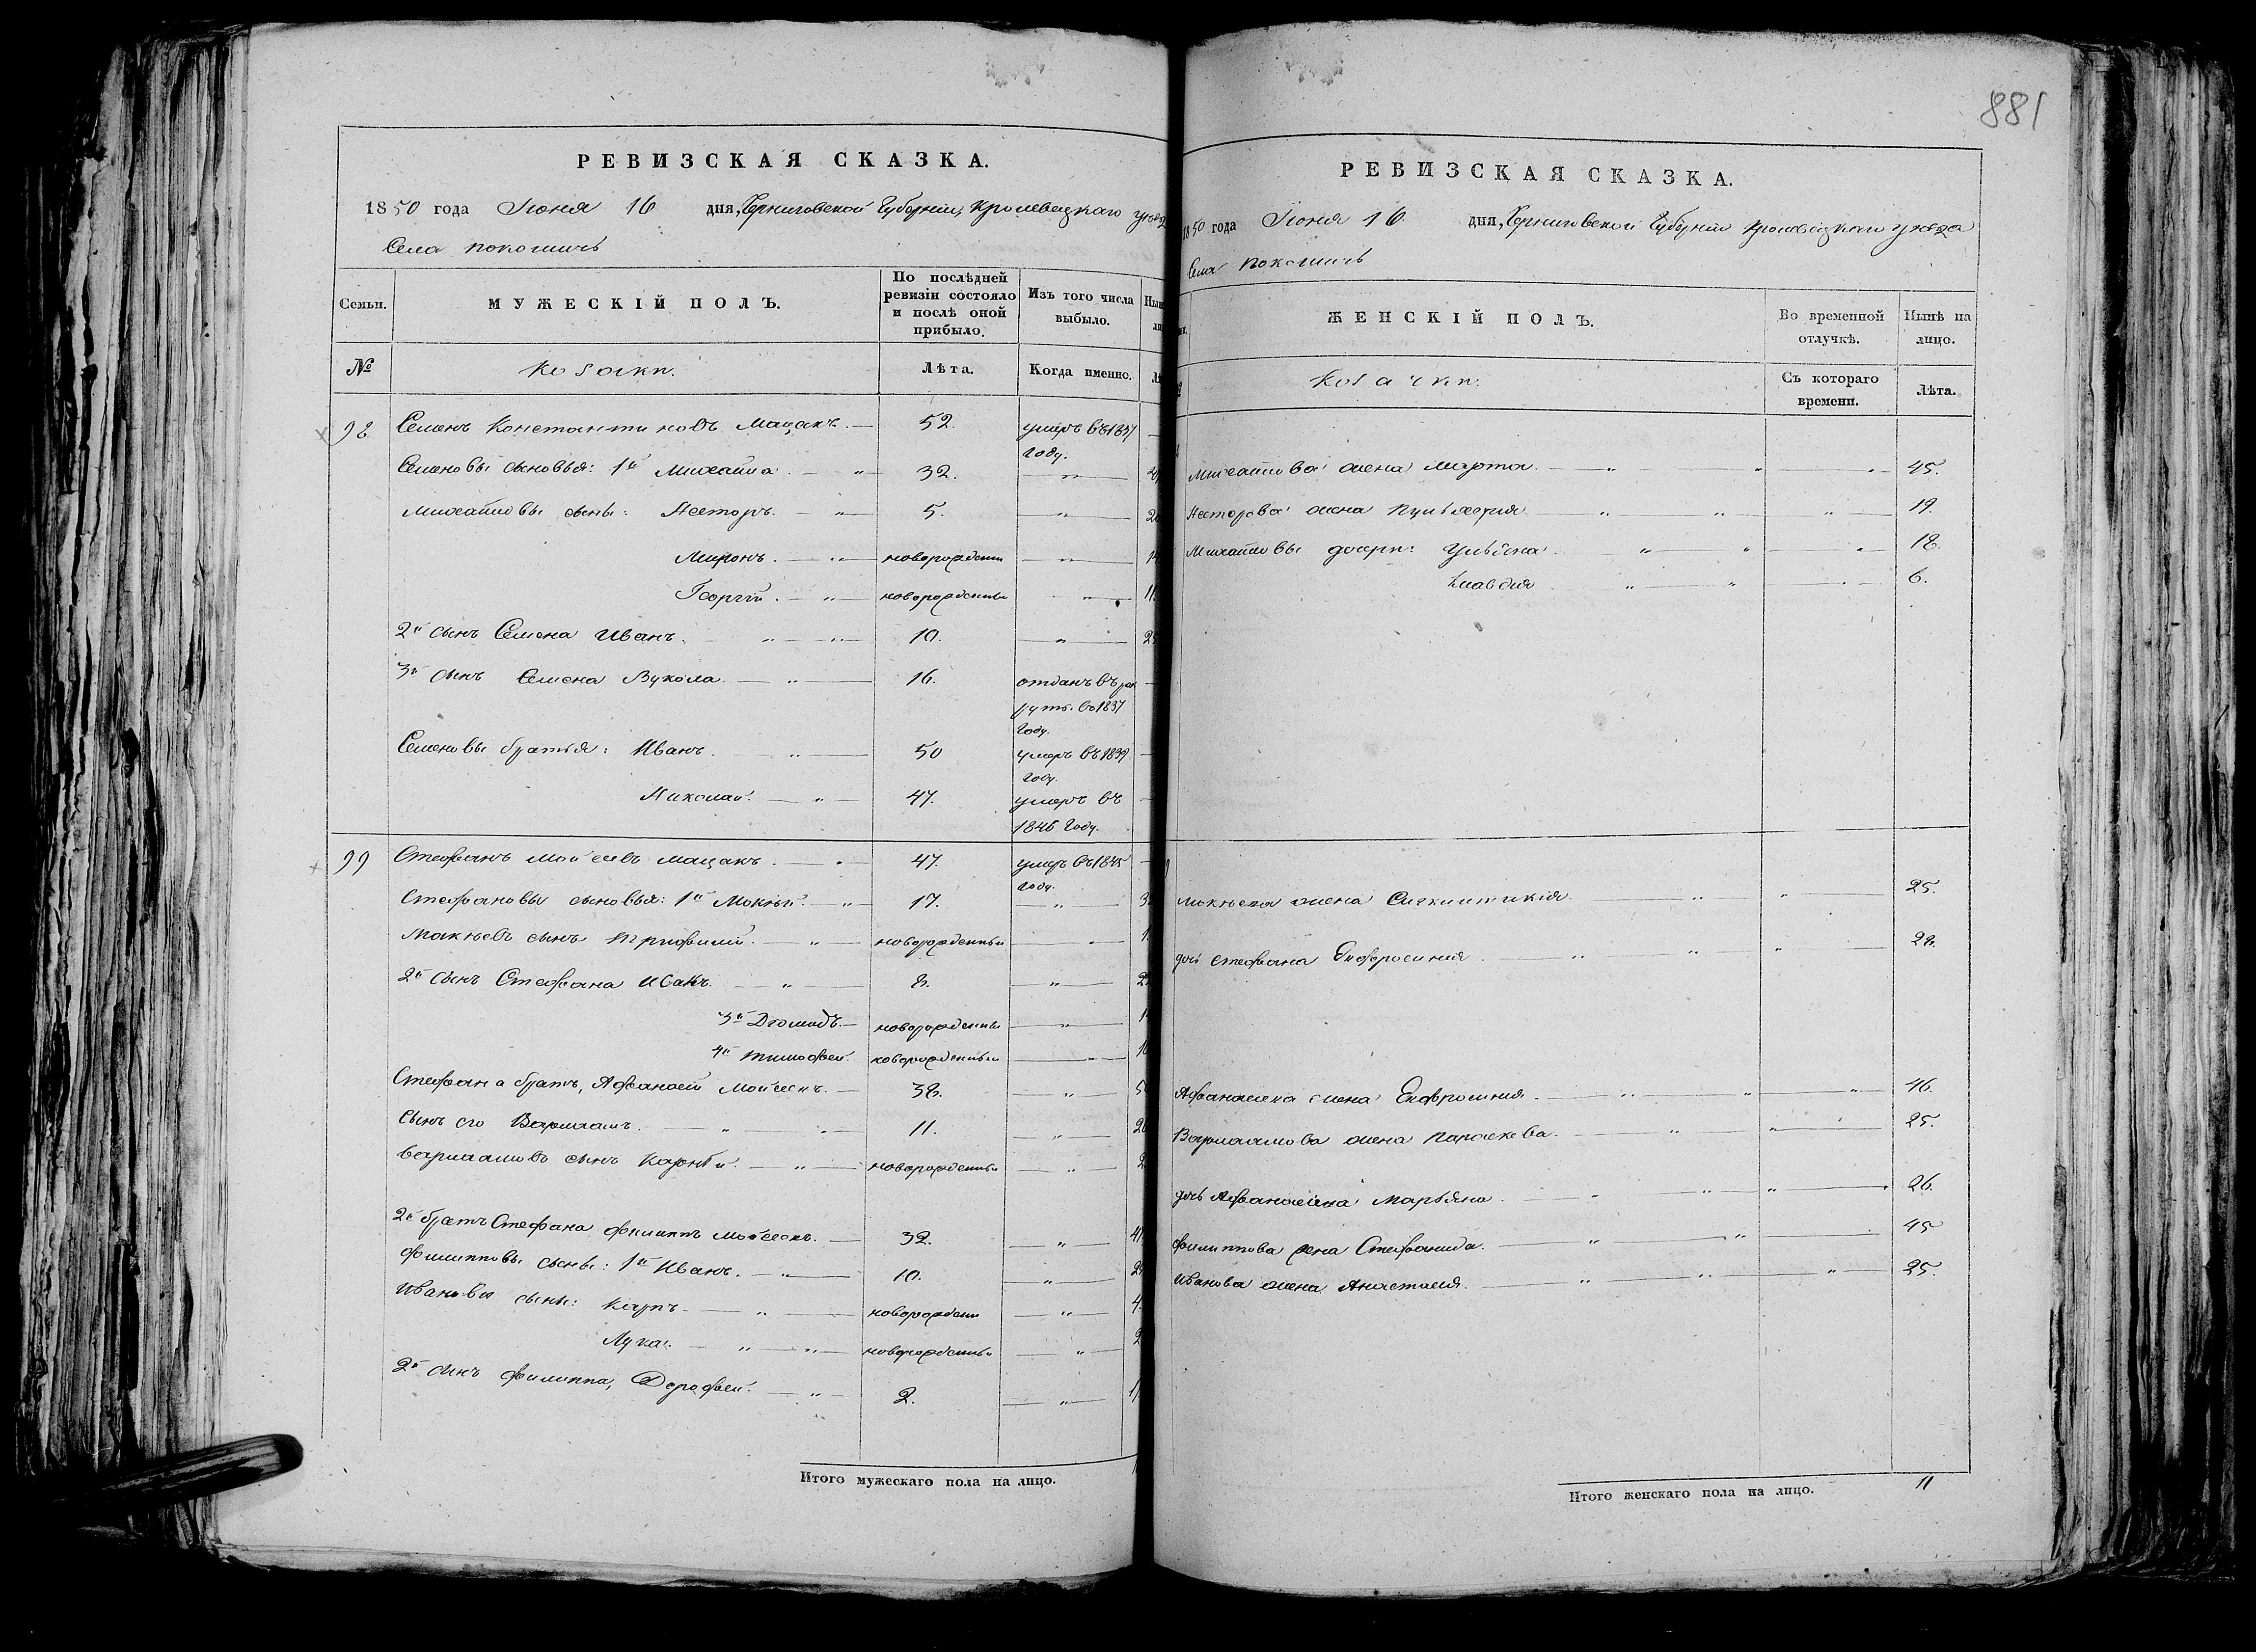 881
РЕВИЗСКАЯ СКАЗКА.
1850 года Июня 16 дня, Черниговской Губерніи, Кролевецкаго уѣзд
Села Покошичь
Семьи.
МУЖЕСКІЙ ПОЛЪ.
По послѣдней ревизіи состояло и послѣ оной прибыло.
Изъ того числа выбыло.
№
Козаки.
Лѣта.
Когда именно.
98 Семенъ Константиновъ Мацакъ. 52. умеръ въ 1837 году.
Семеновы сыновья: 1й Михайла. 32. "
Михайловы сыны: Несторъ. 5. "
Миронъ. новорожденн "
Георгій. новорожденны "
2й сынъ Семена Иванъ. 10. "
3й сынъ Семена Вукола. 16. отданъ въ рек
руты. въ 1837
году.
Семеновы братья: Иванъ. 50 умеръ въ 1839
году.
Николай. 47. умеръ въ
1846 году.
99 Стефанъ Мойсеевъ Мацакъ. 47. умеръ въ 1845
году.
Стефановы сыновья: 1й Мокѣй. 17. "
Мокѣевъ сынъ Трифилій. новорожденны "
2й сынъ Стефана Исакъ. 8. "
3й Діомидъ. новорожденны "
4й Тимофей. новорожденны "
Стефана братъ, Афанасій Мойсеевъ. 38. "
Сынъ его Варлаамъ. 11. "
Варлаамовъ сынъ новорожденны "
2й братъ Стефана Филиппъ Мойсеевъ. 32. "
Филипповы сыны: 1й Иванъ. 10. "
Ивановы сыны: Карпъ. новорожденн "
Лука. новорожденны "
2й сынъ Филиппа, Дорофей. 2. "
Итого мужескаго пола на лицо.
РЕВИЗСКАЯ СКАЗКА.
1850 года Июня 16 дня, Черниговской Губерніи Кролевецкаго уѣзда
Села Покошичь
ЖЕНСКІЙ ПОЛЪ.
Во временной отлучкѣ.
Нынѣ на лицо.
Козачки.
Съ котораго времени.
Лѣта.
Михайлова жена Марта. " " " 45.
Несторова жена Пульхерія " " " 19.
Михайловы дочери: Ульяна. " " " 18.
Клавдія " " 6.
Мокѣева жена Синклитикія " " 25.
дочь Стефана Евфросинія. " " " 28.
Афанасиева жена Евфросинія. " " " 46.
Варлаамова жена Параскева. " " " 25.
дочь Афанасиева Марьяна. " " " 26.
Филиппова жена Стефанида. " " 45
Иванова жена Анастасія. " " " 25.
Итого женскаго пола на лицо. 11